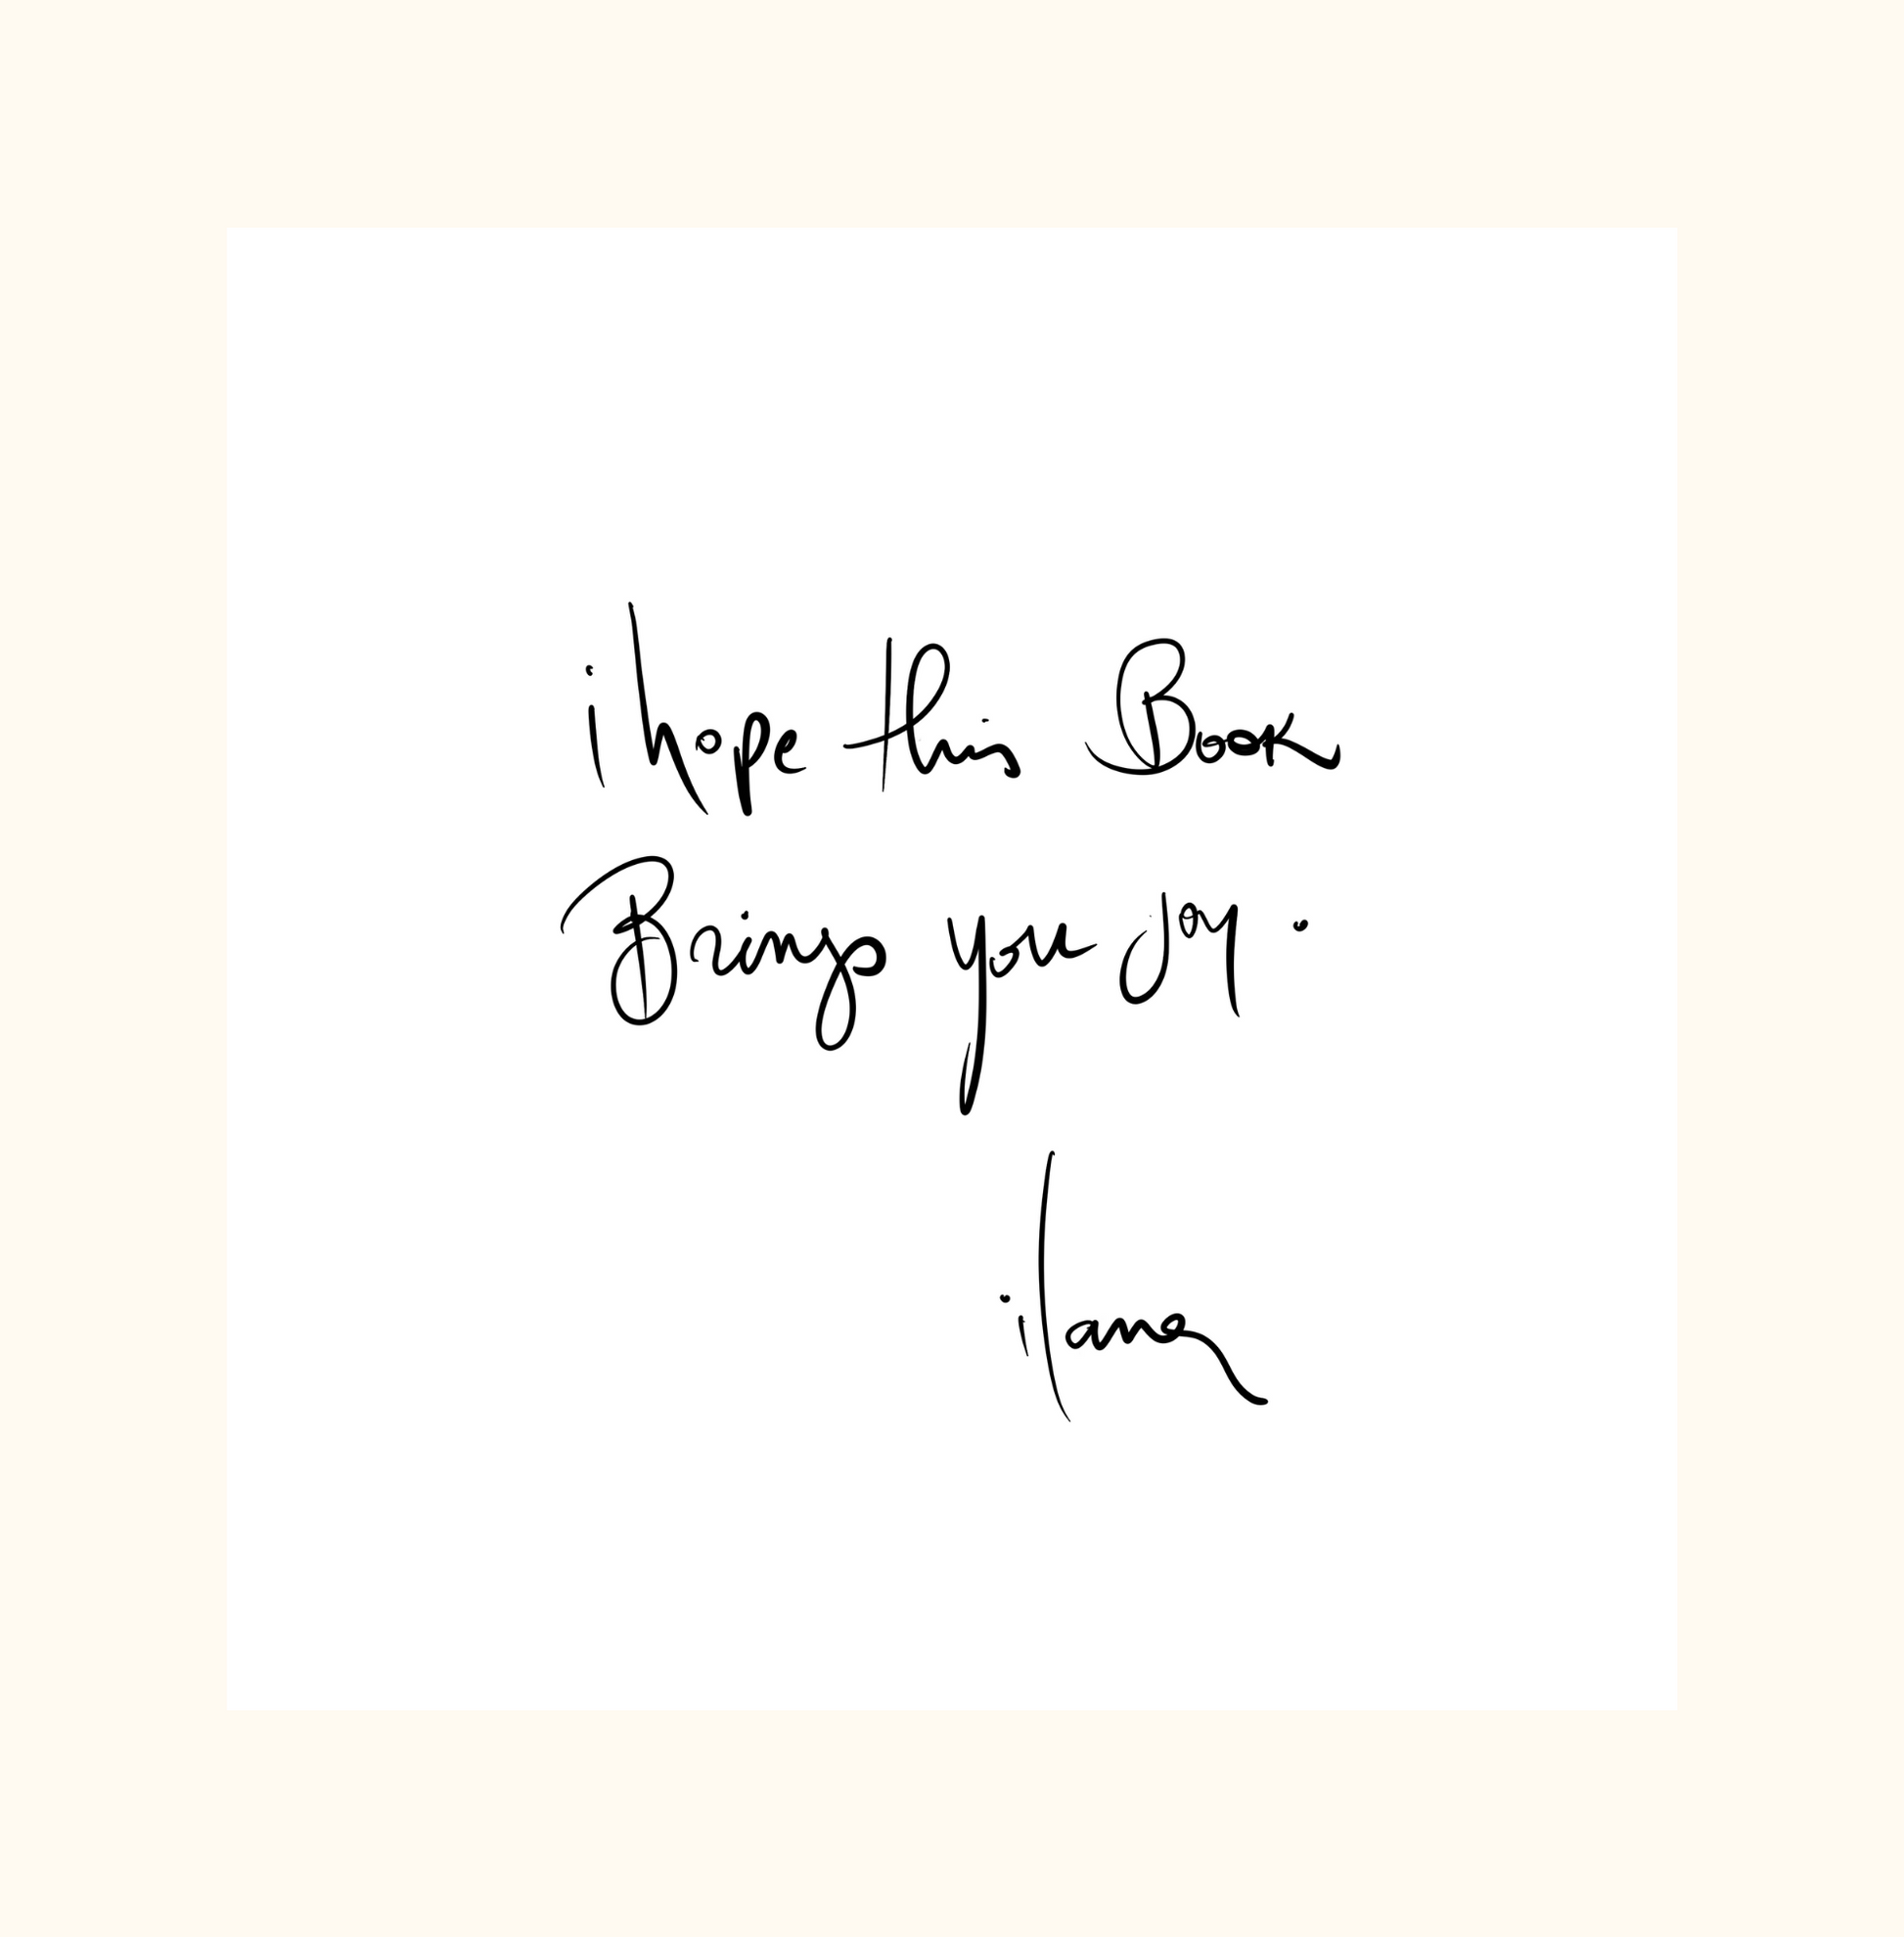 i hope this Book
Brings you joy.
ilana